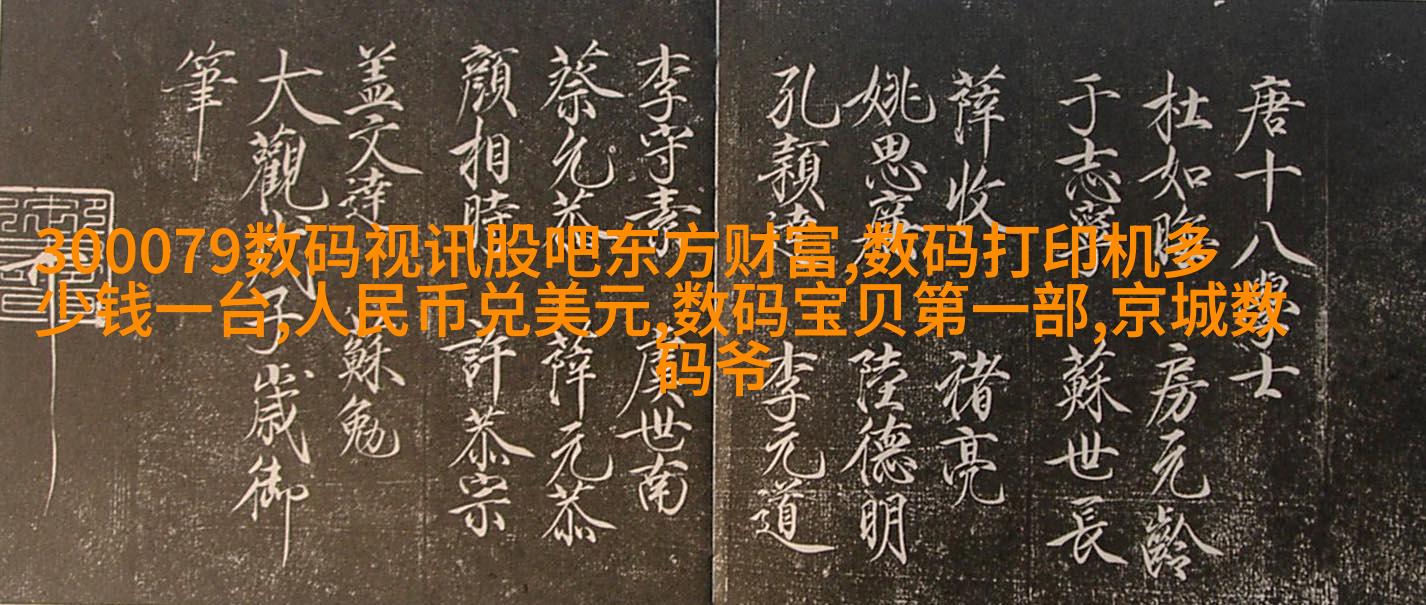 300079数码视讯股吧东方财富,数码打印机多
少钱一台,人民币兑美元,数码宝贝第一部,京城数
码爷
唐十八學士
杜如晦 房元齡
于志寧 蘇世長
薛收 褚亮
姚思廉 陸德明
孔穎達 李元道
李守素 虞世南
蔡元恭 薛元恭
顏相時 許恭宗
盖文達 蘇勉
大觀戊子歲御
筆